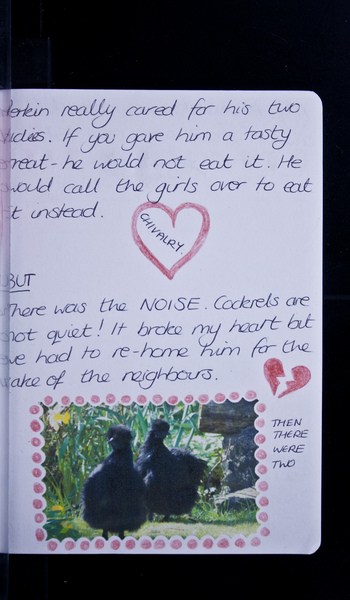 really cared for his two
ladies. If you gave him a tasty
treat - he would not eat it. He
would call the girls over to eat
it instead.
CHIVALRY.
BUT
There was the NOISE. Cockerels are
not quiet! It broke my heart but
we had to re-home him for the
sake of the neighbours.
THEN
THERE
WERE
TWO